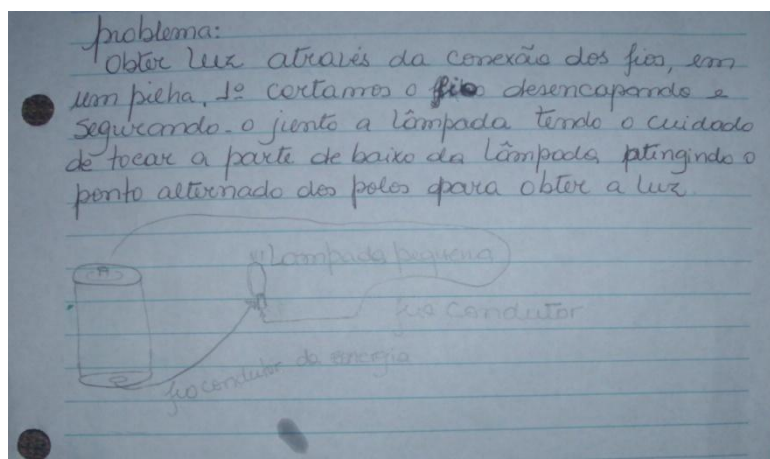 problema:
Obter luz através da conexão dos fios, em
um pilha. 1º cortamos o fio desencapando e
segurando-o junto a lâmpada tendo o cuidado
de tocar a parte de baixo da lâmpada atingindo o
ponto alternado dos polos para obter a luz
Lâmpada pequena
fio condutor
fio condutor da energia